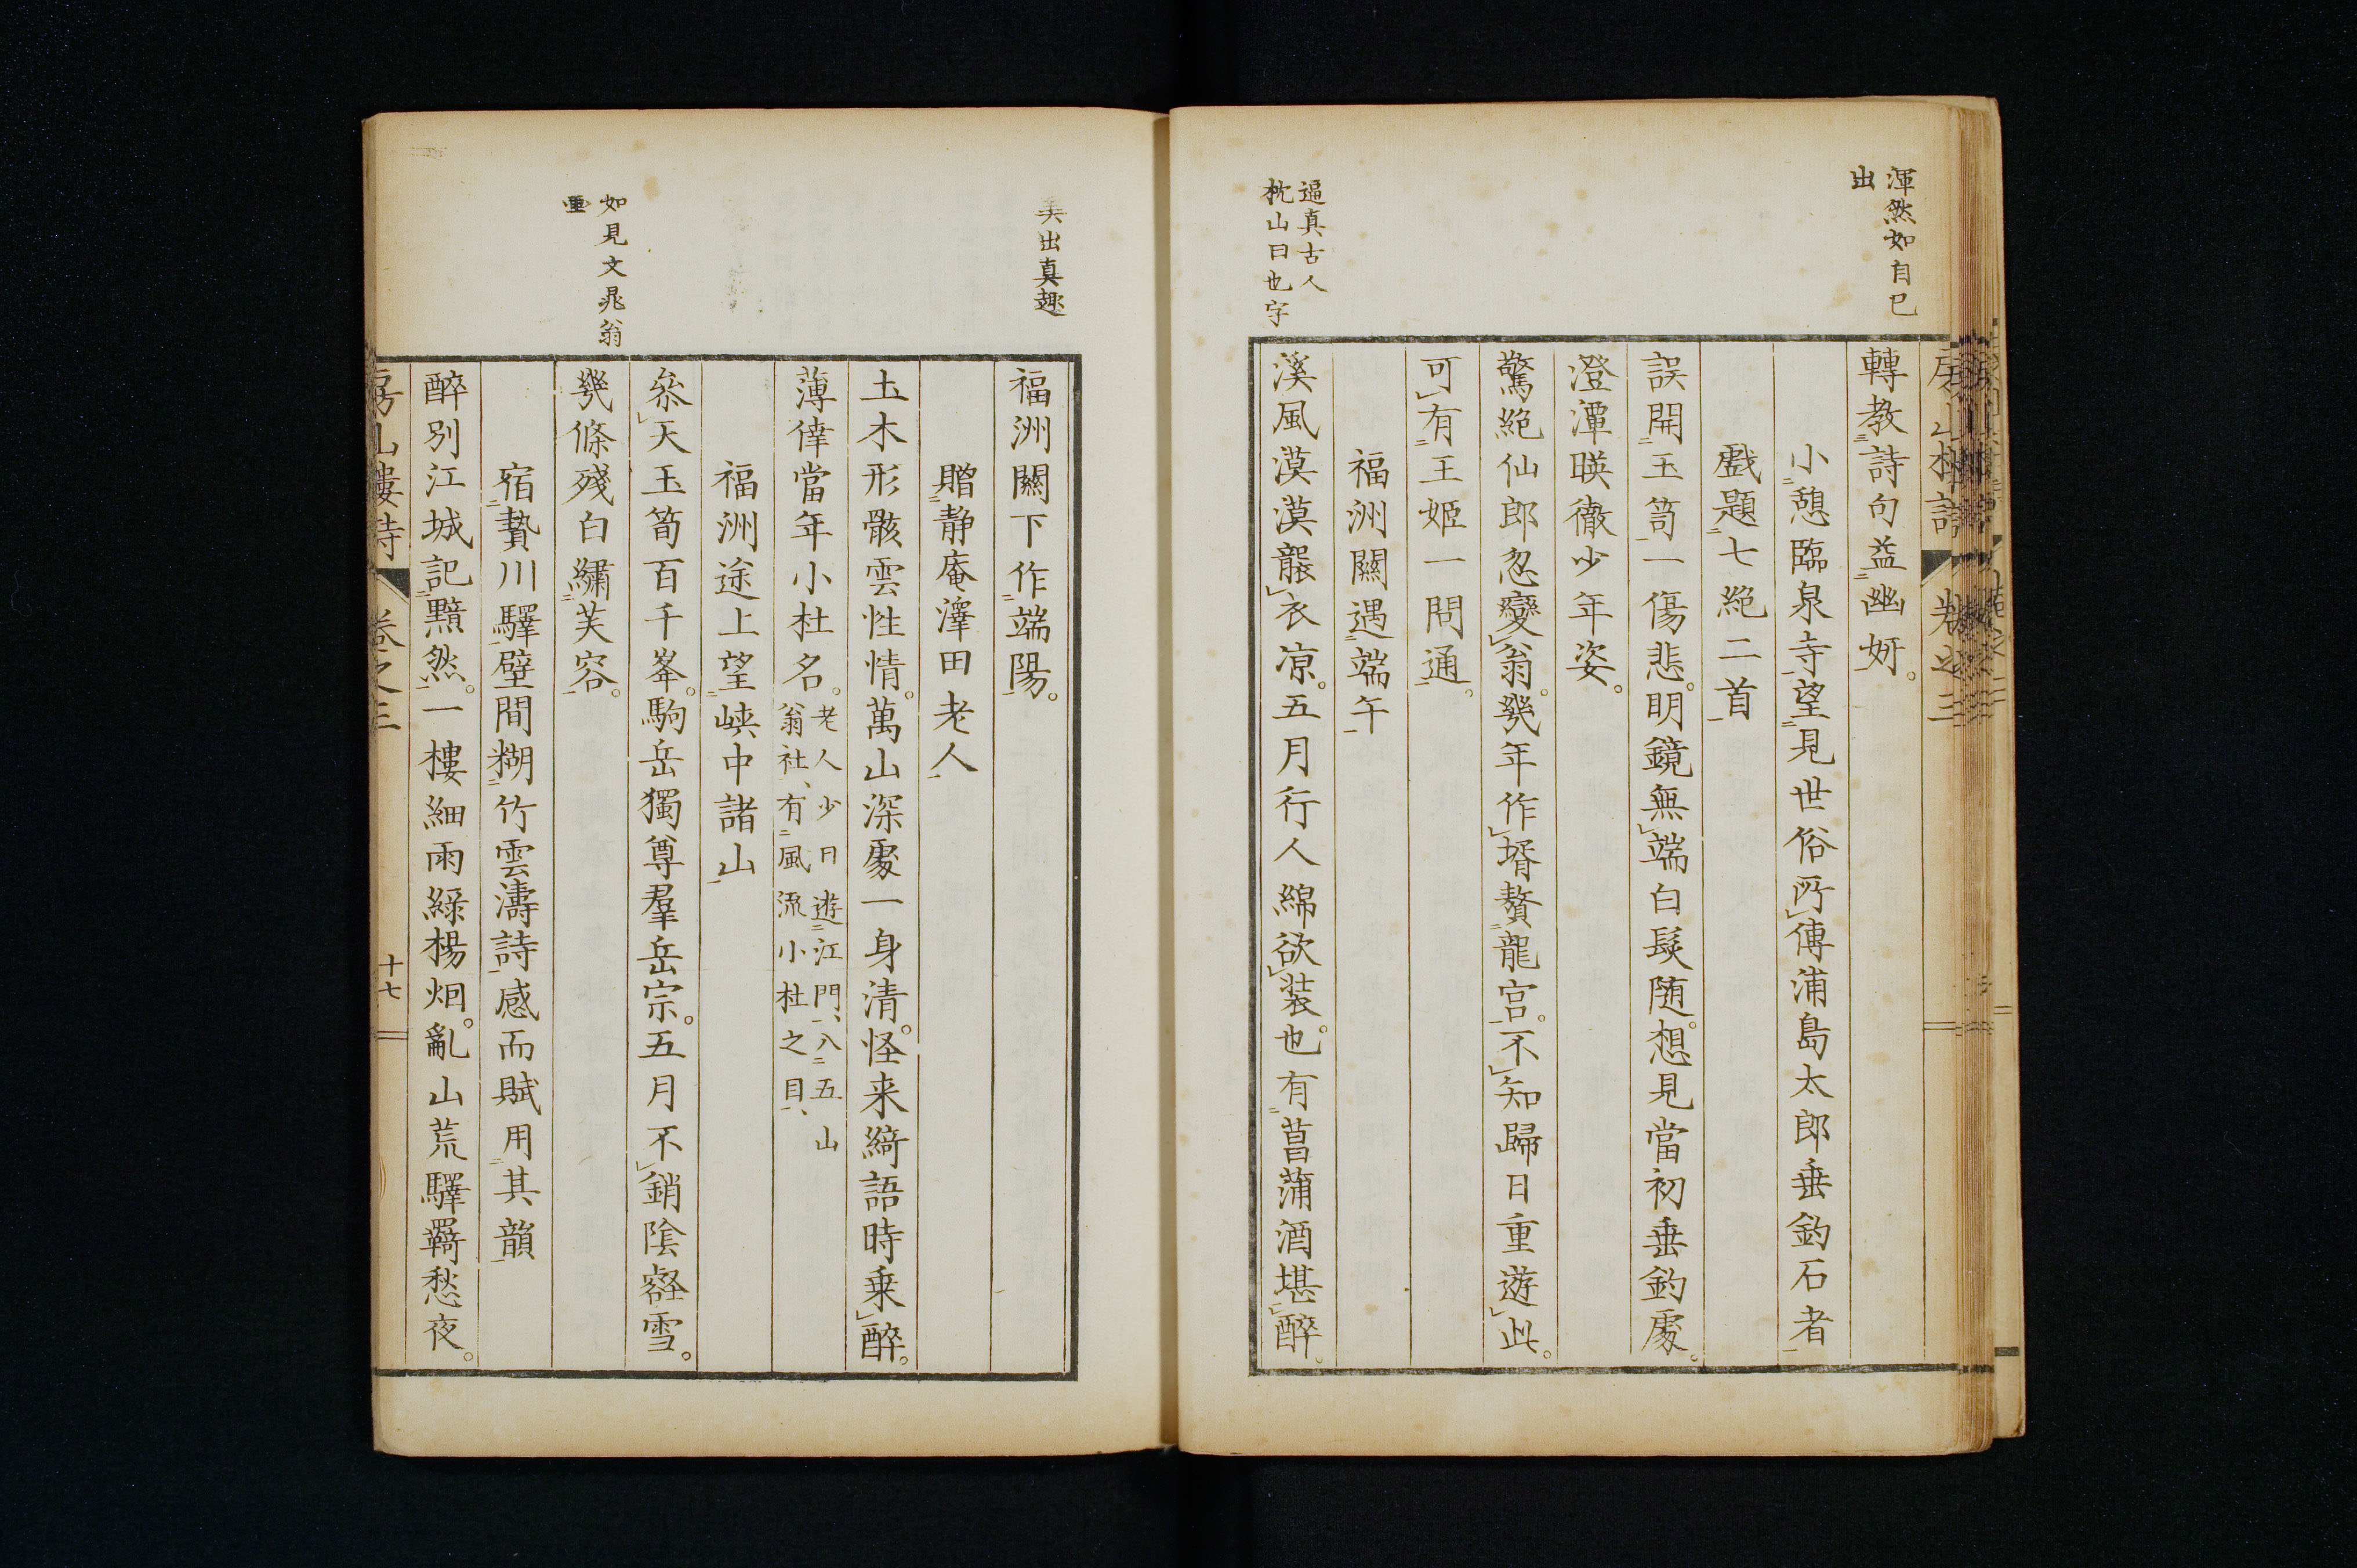 渾然如自已
出
轉教詩句益幽妍。
小憩臨泉寺望見世俗所傳浦島太郎垂釣石者
戲題七絶二首
誤開玉笥一傷悲。明鏡無端白髮随。想見當初垂釣處。
澄潭暎徹少年姿。
驚絶仙郎忽變翁。幾年作壻贅龍宮。不知歸日重遊此。
可有王姬一問通。
福洲關遇端午
逼真古人
枕山曰也字
溪風漠漠襲衣凉。五月行人綿欲装。也有菖蒲酒堪醉。
福洲關下作端陽。
出真趣
贈静庵澤田老人
土木形骸雲性情。萬山深處一身清。怪来綺語時乗醉。
薄倖當年小杜名。老人少日遊江門、入五山
翁社、有風流小杜之目、
福洲途上望峡中諸山
叅天玉筍百千峯。駒岳獨尊羣岳宗。五月不銷陰壑雪。
如見文晁翁
畫
幾條殘白繡芙容。
宿贄川驛壁間糊竹雲濤詩感而賦用其韻
醉別江城記黯然。一樓細雨綠楊烟。亂山荒驛羇愁夜。
房山樓詩 卷之三 十七